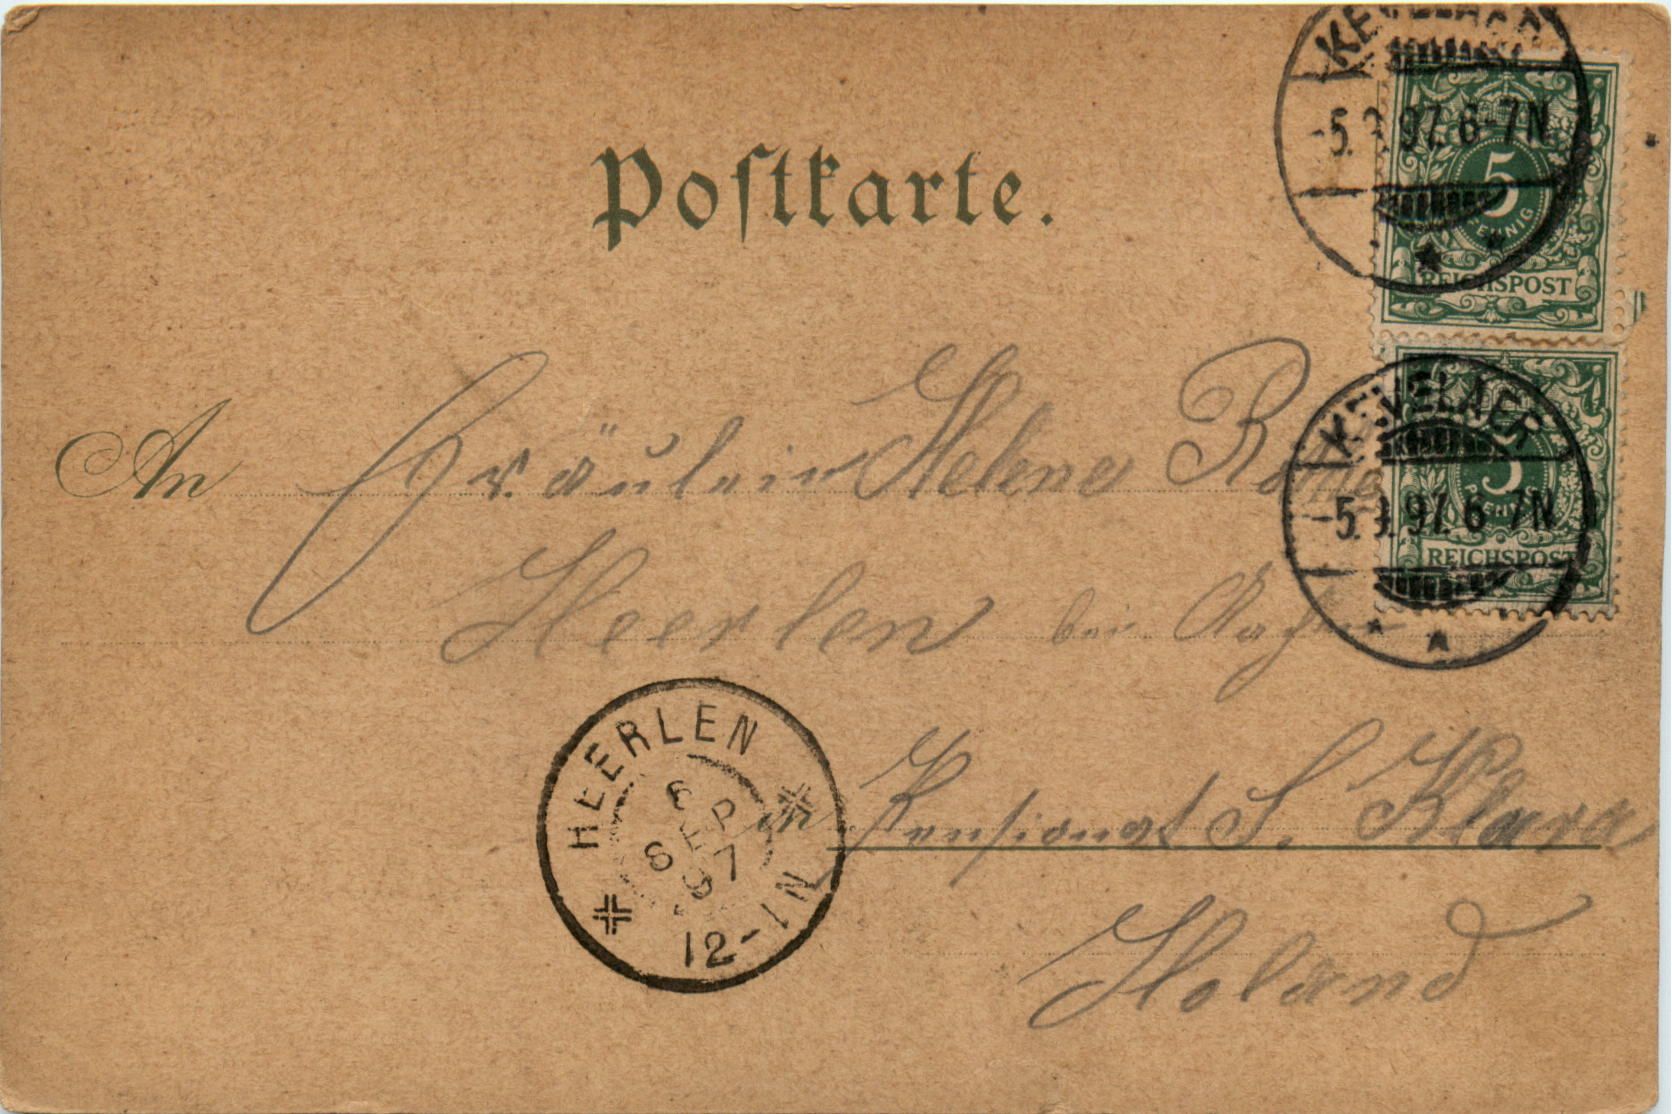 Postkarte.
KEVELAER
-5.9.97.6-7N
5
PFENNIG
REICHSPOST
KEVELAER
-5.9.97.6-7N
5
PFENNIG
REICHSPOST
An Fräulein Helene
Heerlen bei
in Pensionat S. Klara
Holand
HEERLEN
6
SEP
97
12-1N